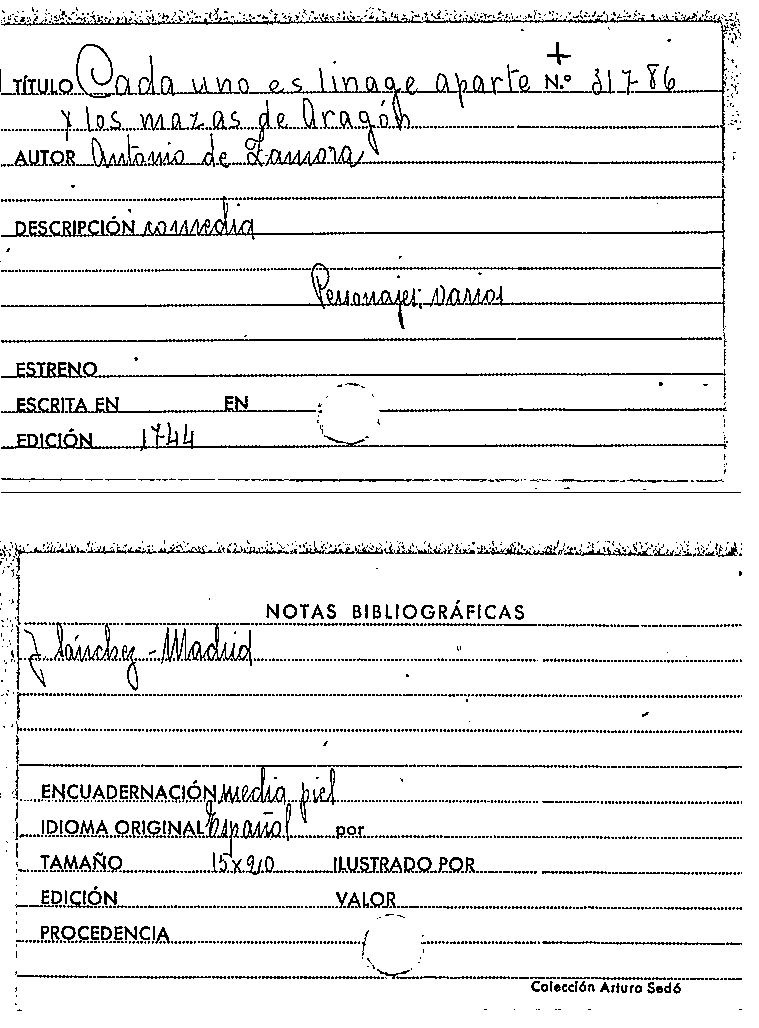 +
TÍTULO Cada uno es linage aparte N.º 317-86
y los mazas de Aragón
AUTOR Antonio de Zamora
DESCRIPCIÓN comedia
Personajes: varios
ESTRENO
ESCRITA EN EN
EDICIÓN 1744
NOTAS BIBLIOGRÁFICAS
J Sánchez - Madrid
ENCUADERNACIÓN media piel
IDIOMA ORIGINAL Español por
TAMAÑO 15x20 ILUSTRADO POR
EDICIÓN VALOR
PROCEDENCIA
Colección Arturo Sedó